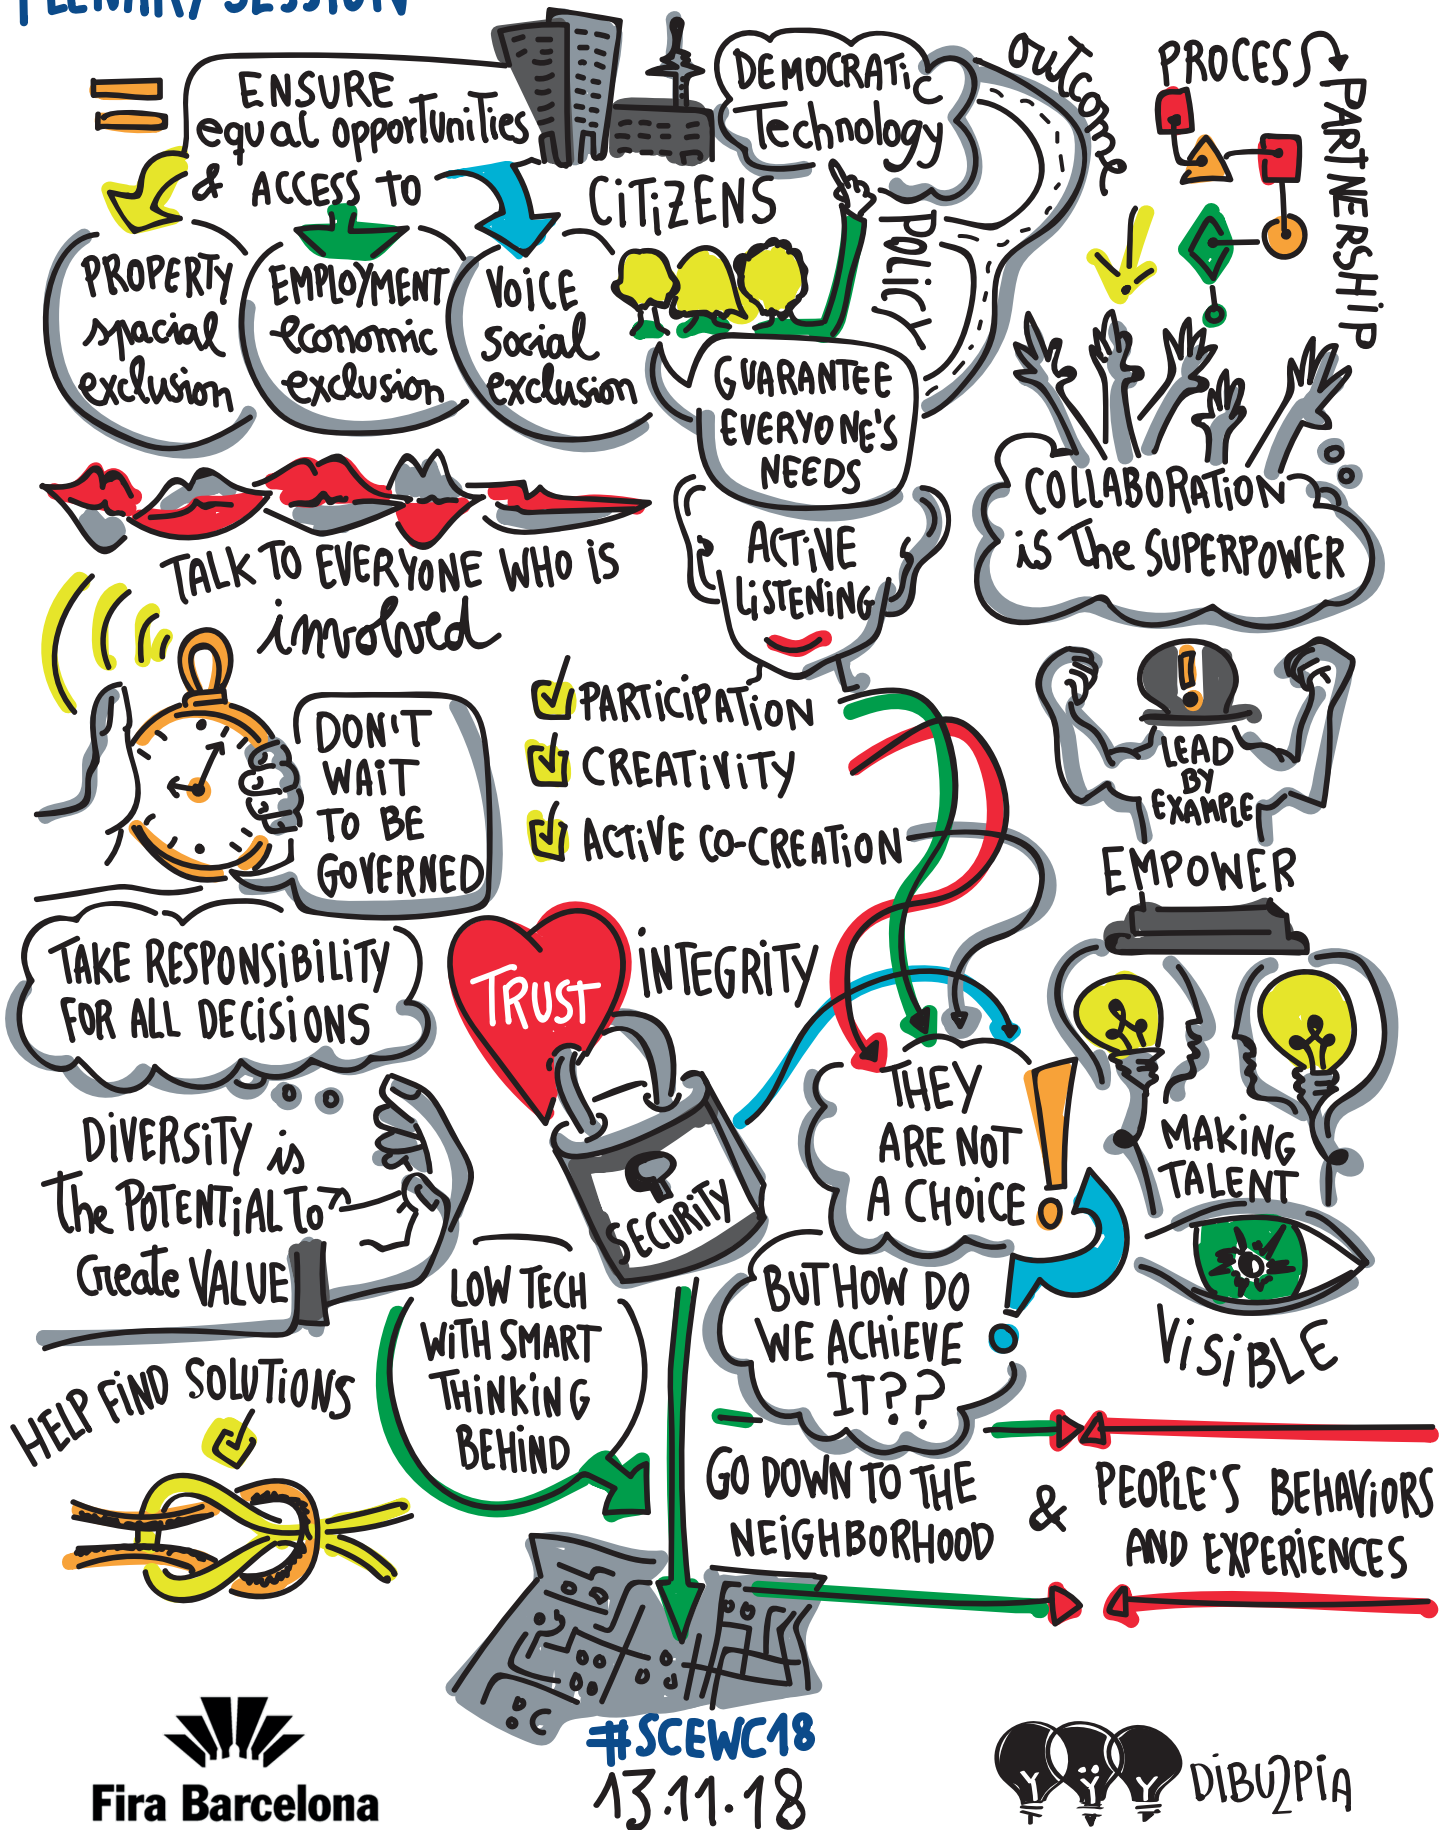 PLENARY SESSION
ENSURE
equal opportunities
& ACCESS TO
PROPERTY
spacial
exclusion
EMPLOYMENT
economic
exclusion
VOICE
social
exclusion
CITIZENS
DEMOCRATIC
Technology
POLICY
OUTCOME
PROCESS
PARTNERSHIP
GUARANTEE
EVERYONE'S
NEEDS
ACTIVE
LISTENING
COLLABORATION
is the SUPERPOWER
TALK TO EVERYONE WHO IS
involved
DON'T
WAIT
TO BE
GOVERNED
PARTICIPATION
CREATIVITY
ACTIVE CO-CREATION
!
LEAD
BY
EXAMPLE
EMPOWER
TAKE RESPONSIBILITY
FOR ALL DECISIONS
TRUST
INTEGRITY
SECURITY
THEY
ARE NOT
A CHOICE
!
?
MAKING
TALENT
VISIBLE
DIVERSITY is
the POTENTIAL TO
Create VALUE
LOW TECH
WITH SMART
THINKING
BEHIND
BUT HOW DO
WE ACHIEVE
IT??
HELP FIND SOLUTIONS
GO DOWN TO THE
NEIGHBORHOOD
&
PEOPLE'S BEHAVIORS
AND EXPERIENCES
#SCEWC18
13.11.18
Fira Barcelona
DIBU2PIA